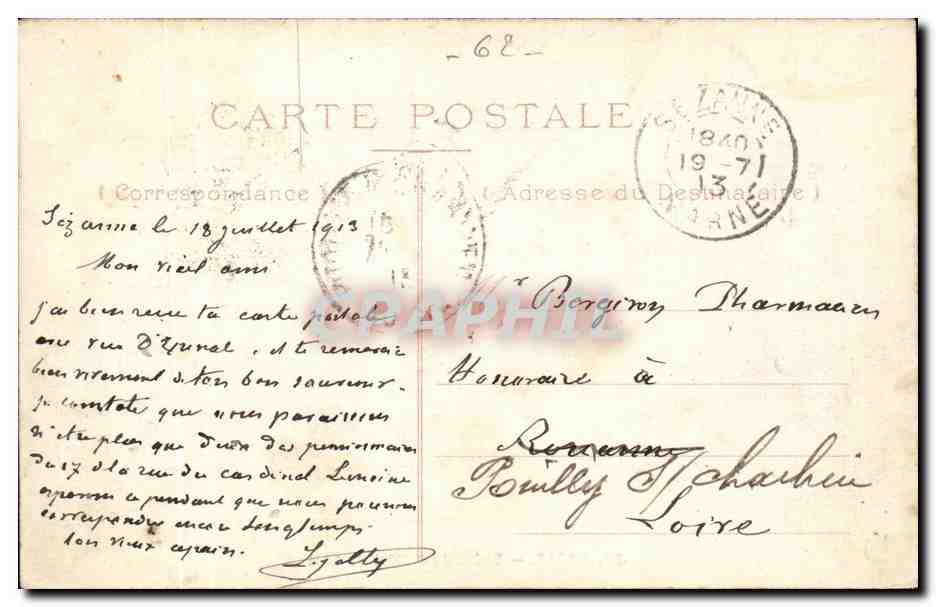 - 62 -
CARTE POSTALE
( Correspondance ) ( Adresse du Destinataire )
SEZANNE
1840
19 -7
13
MARNE
Sézanne le 18 juillet 1913
Mon vieil ami
j'ai bien reçu ta carte postale
avec vue d' et te remercie
bien vivement de ton bon souvenir.
je constate que nous
n'être plus que deux des pensionnaires
du 17 de la rue du cardinal Lemoine
espérons cependant que nous pourrons
correspondre encore longtemps.
ton vieux copain.
Mr Bergiron Pharmacien
Honoraire à
Roanne
Pouilly S/ Charlieu
Loire
CPAPHIL